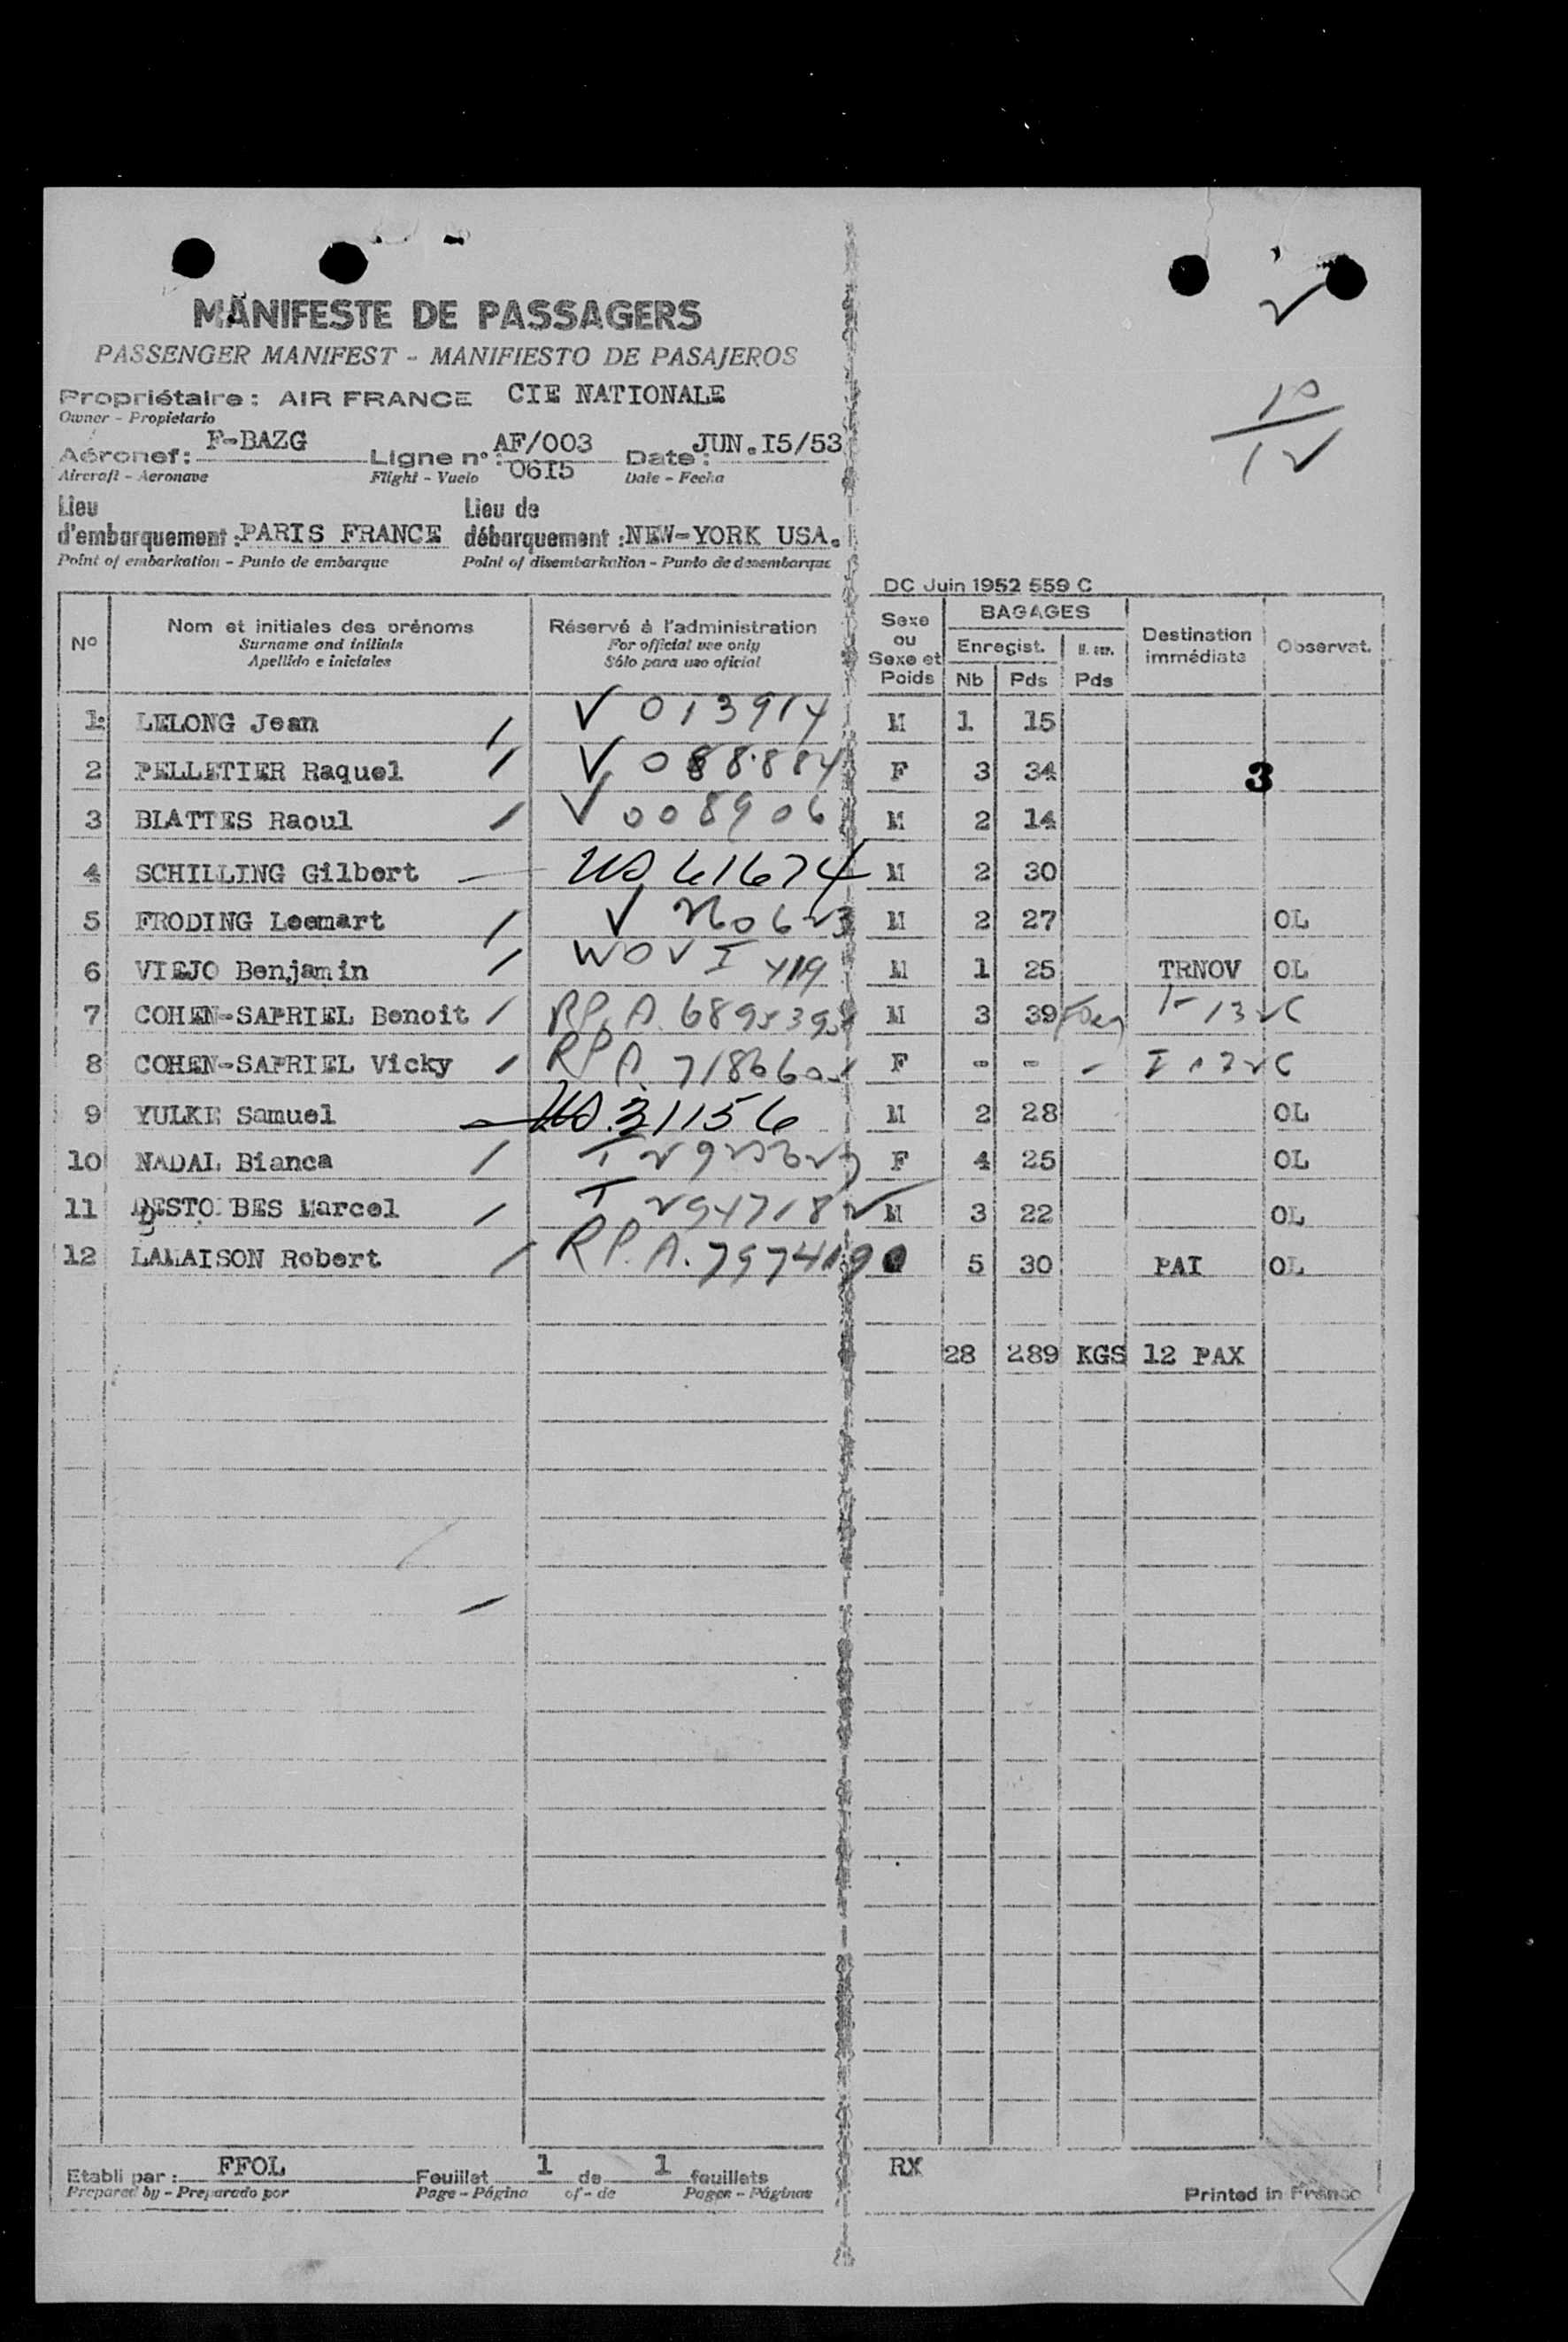 MANIFESTE DE PASSAGERS
PASSENGER MANIFEST - MANIFIESTO DE PASAJEROS
Propriétaire : AIR FRANCE CIE NATIONALE
Owner - Propietario
Aéronef : F-BAZG Ligne n° : AF/003 0615 Date : JUN.I5/53
Aircraft - Aeronave Flight - Vuelo Date - Fecha
Lieu d'embarquement : PARIS FRANCE Lieu de débarquement : NEW-YORK USA.
Point of embarkation - Punto de embarque Point of disembarkation - Punto de desembarque
10
12
DC Juin 1952 559 C
N° Nom et initiales des prénoms Réservé à l'administration Sexe ou Sexe et Poids BAGAGES Destination immédiate Observat.
Surname and initials For official use only Enregist.
Apellido e iniciales Sólo para uso oficial Nb Pds Pds
1 LELONG Jean V 013914 M 1 15
2 PELLETIER Raquel V 088884 F 3 34 3
3 BLATTES Raoul V 008906 M 2 14
4 SCHILLING Gilbert US 61674 M 2 30
5 FRODING Leemart V M 2 27 OL
6 VIEJO Benjamin M 1 25 TRNOV OL
7 COHEN-SAPRIEL Benoit RP.A. M 3 39
8 COHEN-SAPRIEL Vicky RP A. F - - -
9 YULKE Samuel US 31156 M 2 28 OL
10 NADAL Bianca F 4 25 OL
11 DESTO BES Marcel M 3 22 OL
12 LAMAISON Robert R P. A. 5 30 PAI OL
28 289 KGS 12 PAX
Etabli par : FFOL Feuillet 1 de 1 feuillets RX
Prepared by - Preparado por Page - Página of - de Pages - Páginas Printed in France